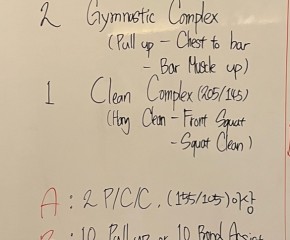 2 Gymnastic Complex
(Pull up - Chest to bar
- Bar Muscle up)
1 Clean Complex (205/145)
(Hang Clean - Front Squat
- Squat Clean)
A : 2 P/C/C. (155/105) 이상
: 10 Pull up or 10 Band Assist